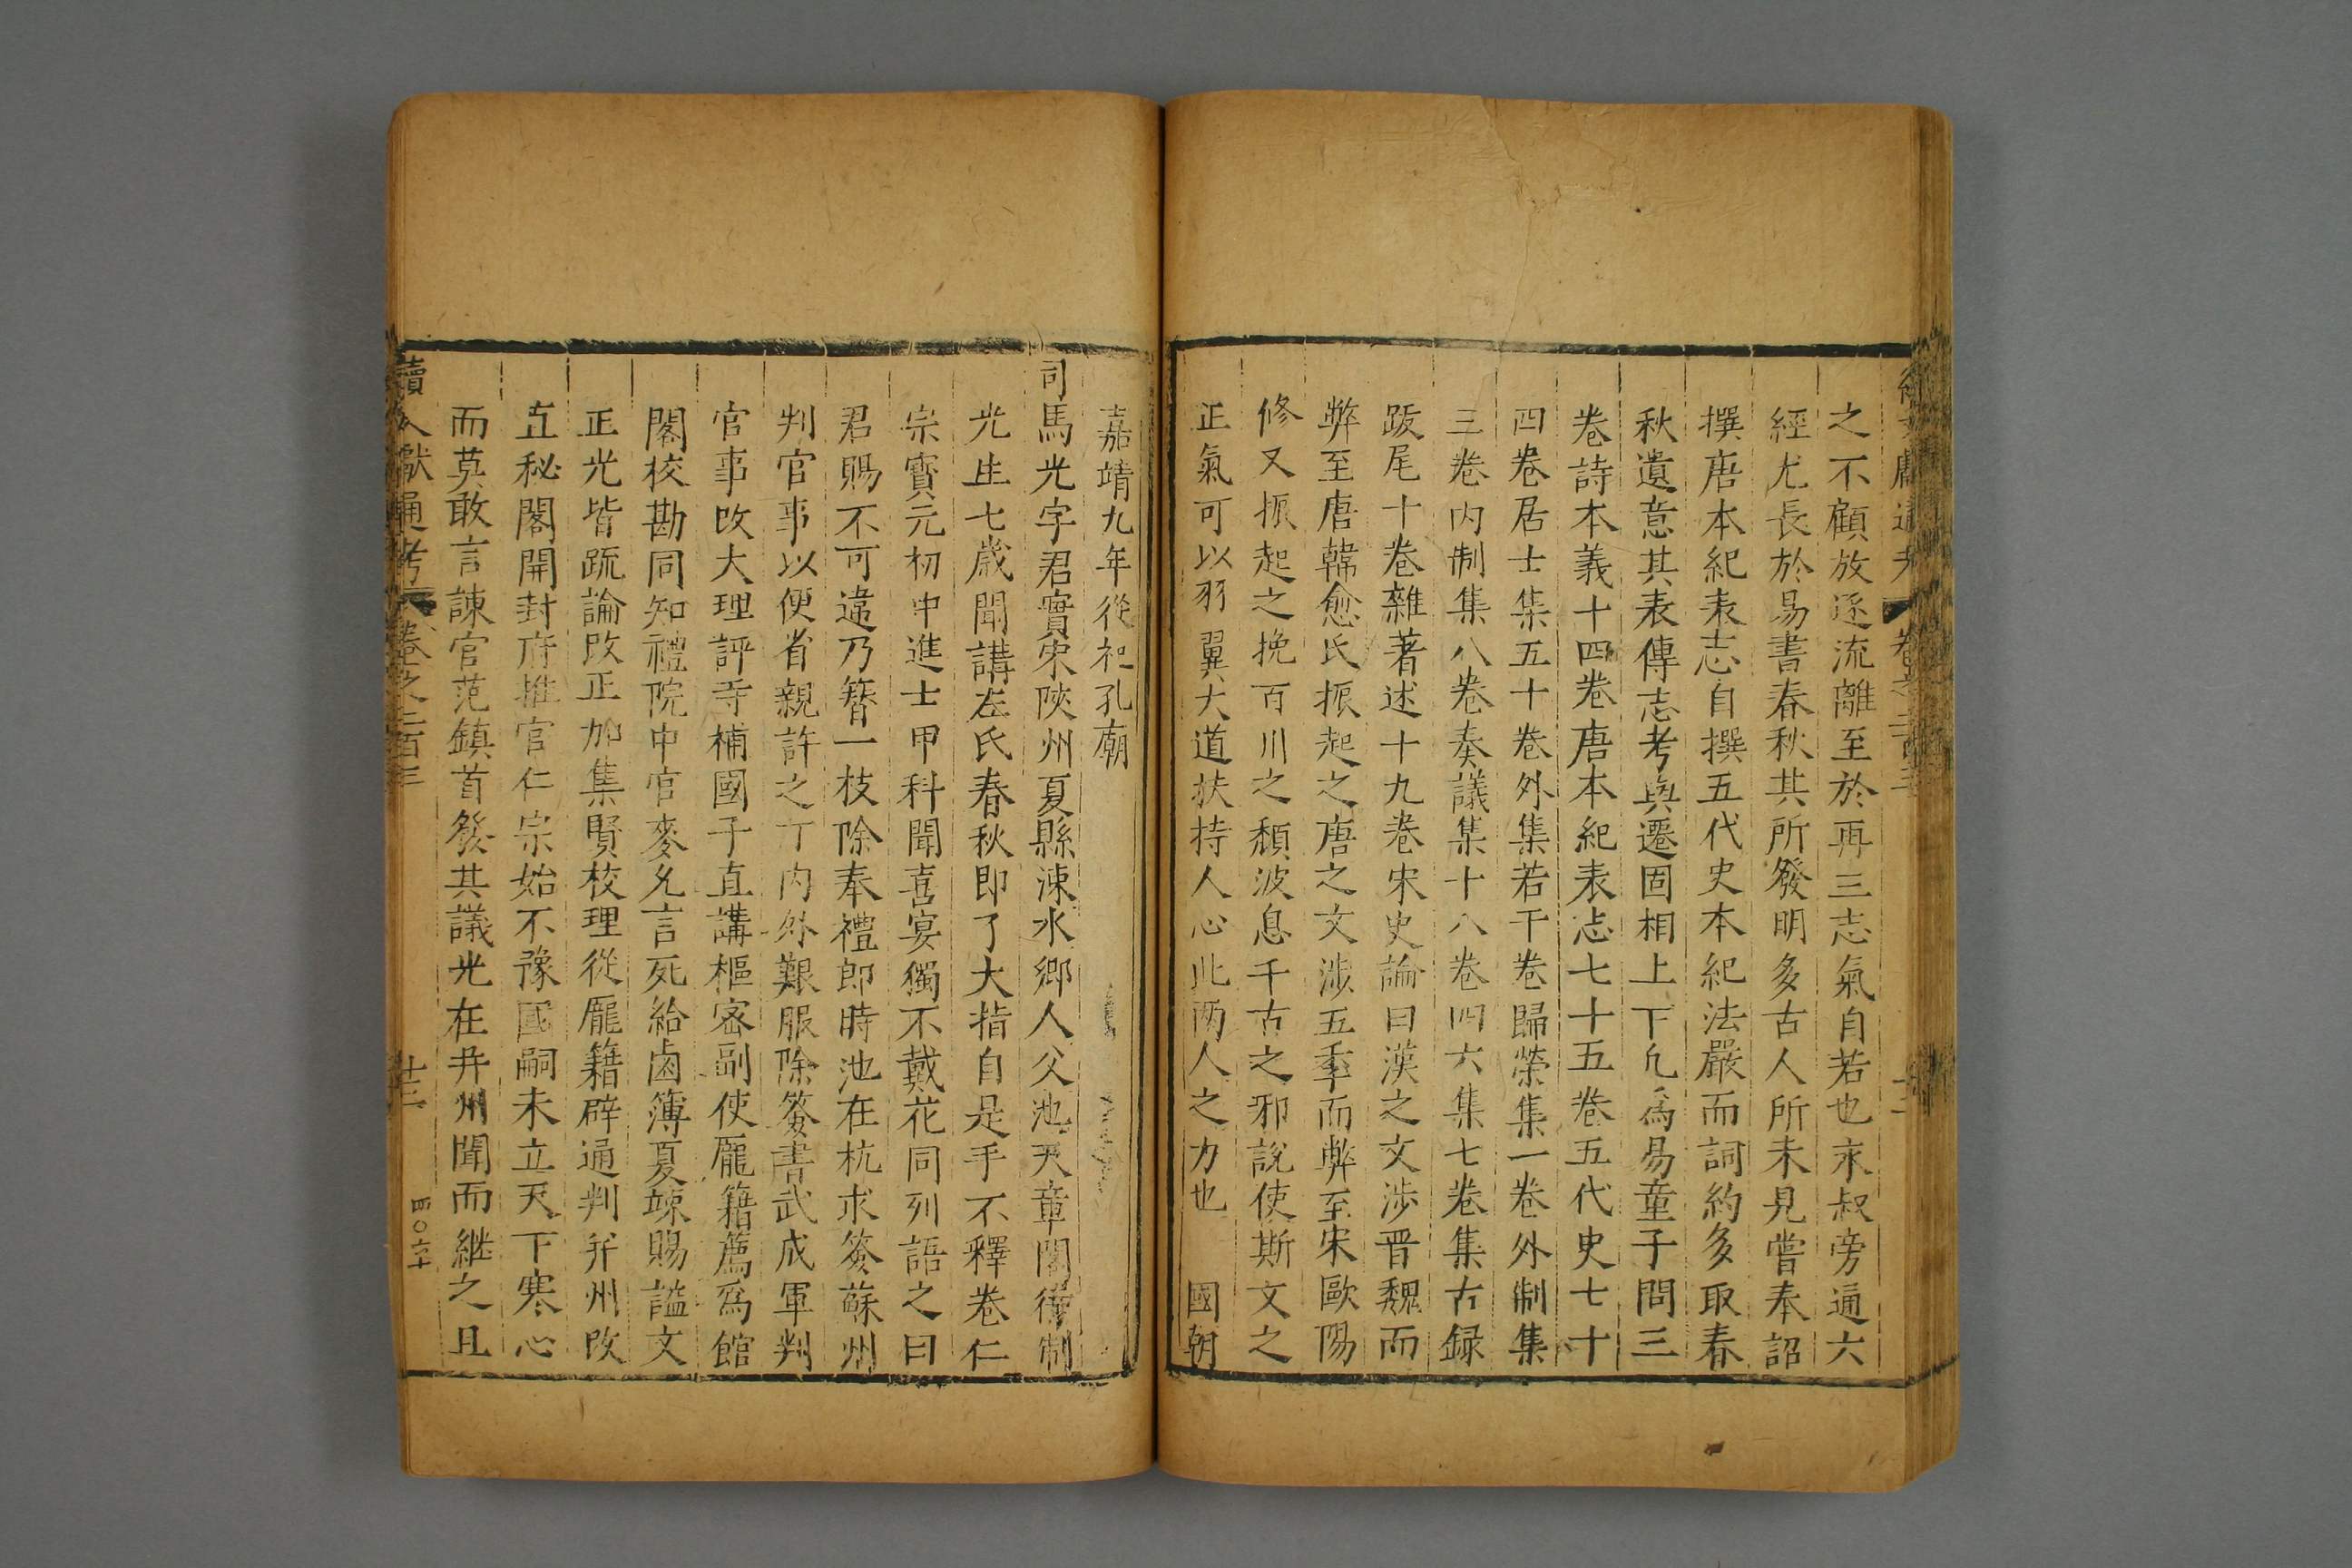 之不顧放逐流離至於再三志氣自若也永叔旁通六
經尤長於易書春秋其所發明多古人所未見嘗奉詔
撰唐本紀表志自撰五代史本紀法嚴而詞約多取春
秋遺意其表傳志考與遷固相上下凢爲易童子問三
卷詩本義十四卷唐本紀表志七十五卷五代史七十
四卷居士集五十卷外集若干卷歸榮集一卷外制集
三卷内制集八卷奏議集十八卷四六集七卷集古録
跋尾十卷雜著述十九卷宋史論曰漢之文涉晋魏而
弊至唐韓愈氏振起之唐之文涉五季而弊至宋歐陽
修又振起之挽百川之頹波息千古之邪説使斯文之
正氣可以羽翼大道扶持人心此两人之力也　國朝
嘉靖九年從祀孔廟
司馬光字君實宋陝州夏縣涑水鄉人父池天章閣待制
光生七歲聞講左氏春秋即了大指自是手不釋卷仁
宗寳元初中進士甲科聞喜宴獨不戴花同列語之曰
君賜不可違乃簮一枝除奉禮郎時池在杭求簽蘇州
判官事以便省親許之丁内外艱服除簽書武成軍判
官事改大理評寺補國子直講樞密副使龐籍薦爲館
閣校勘同知禮院中官麥允言死給鹵簿夏竦賜謚文
正光皆䟽論改正加集賢校理從龐籍辟通判并州改
直秘閣開封府推官仁宗始不豫國嗣未立天下寒心
而莫敢言諫官范鎮首發其議光在并州聞而継之且
續文獻通考 卷之二百三 廿三